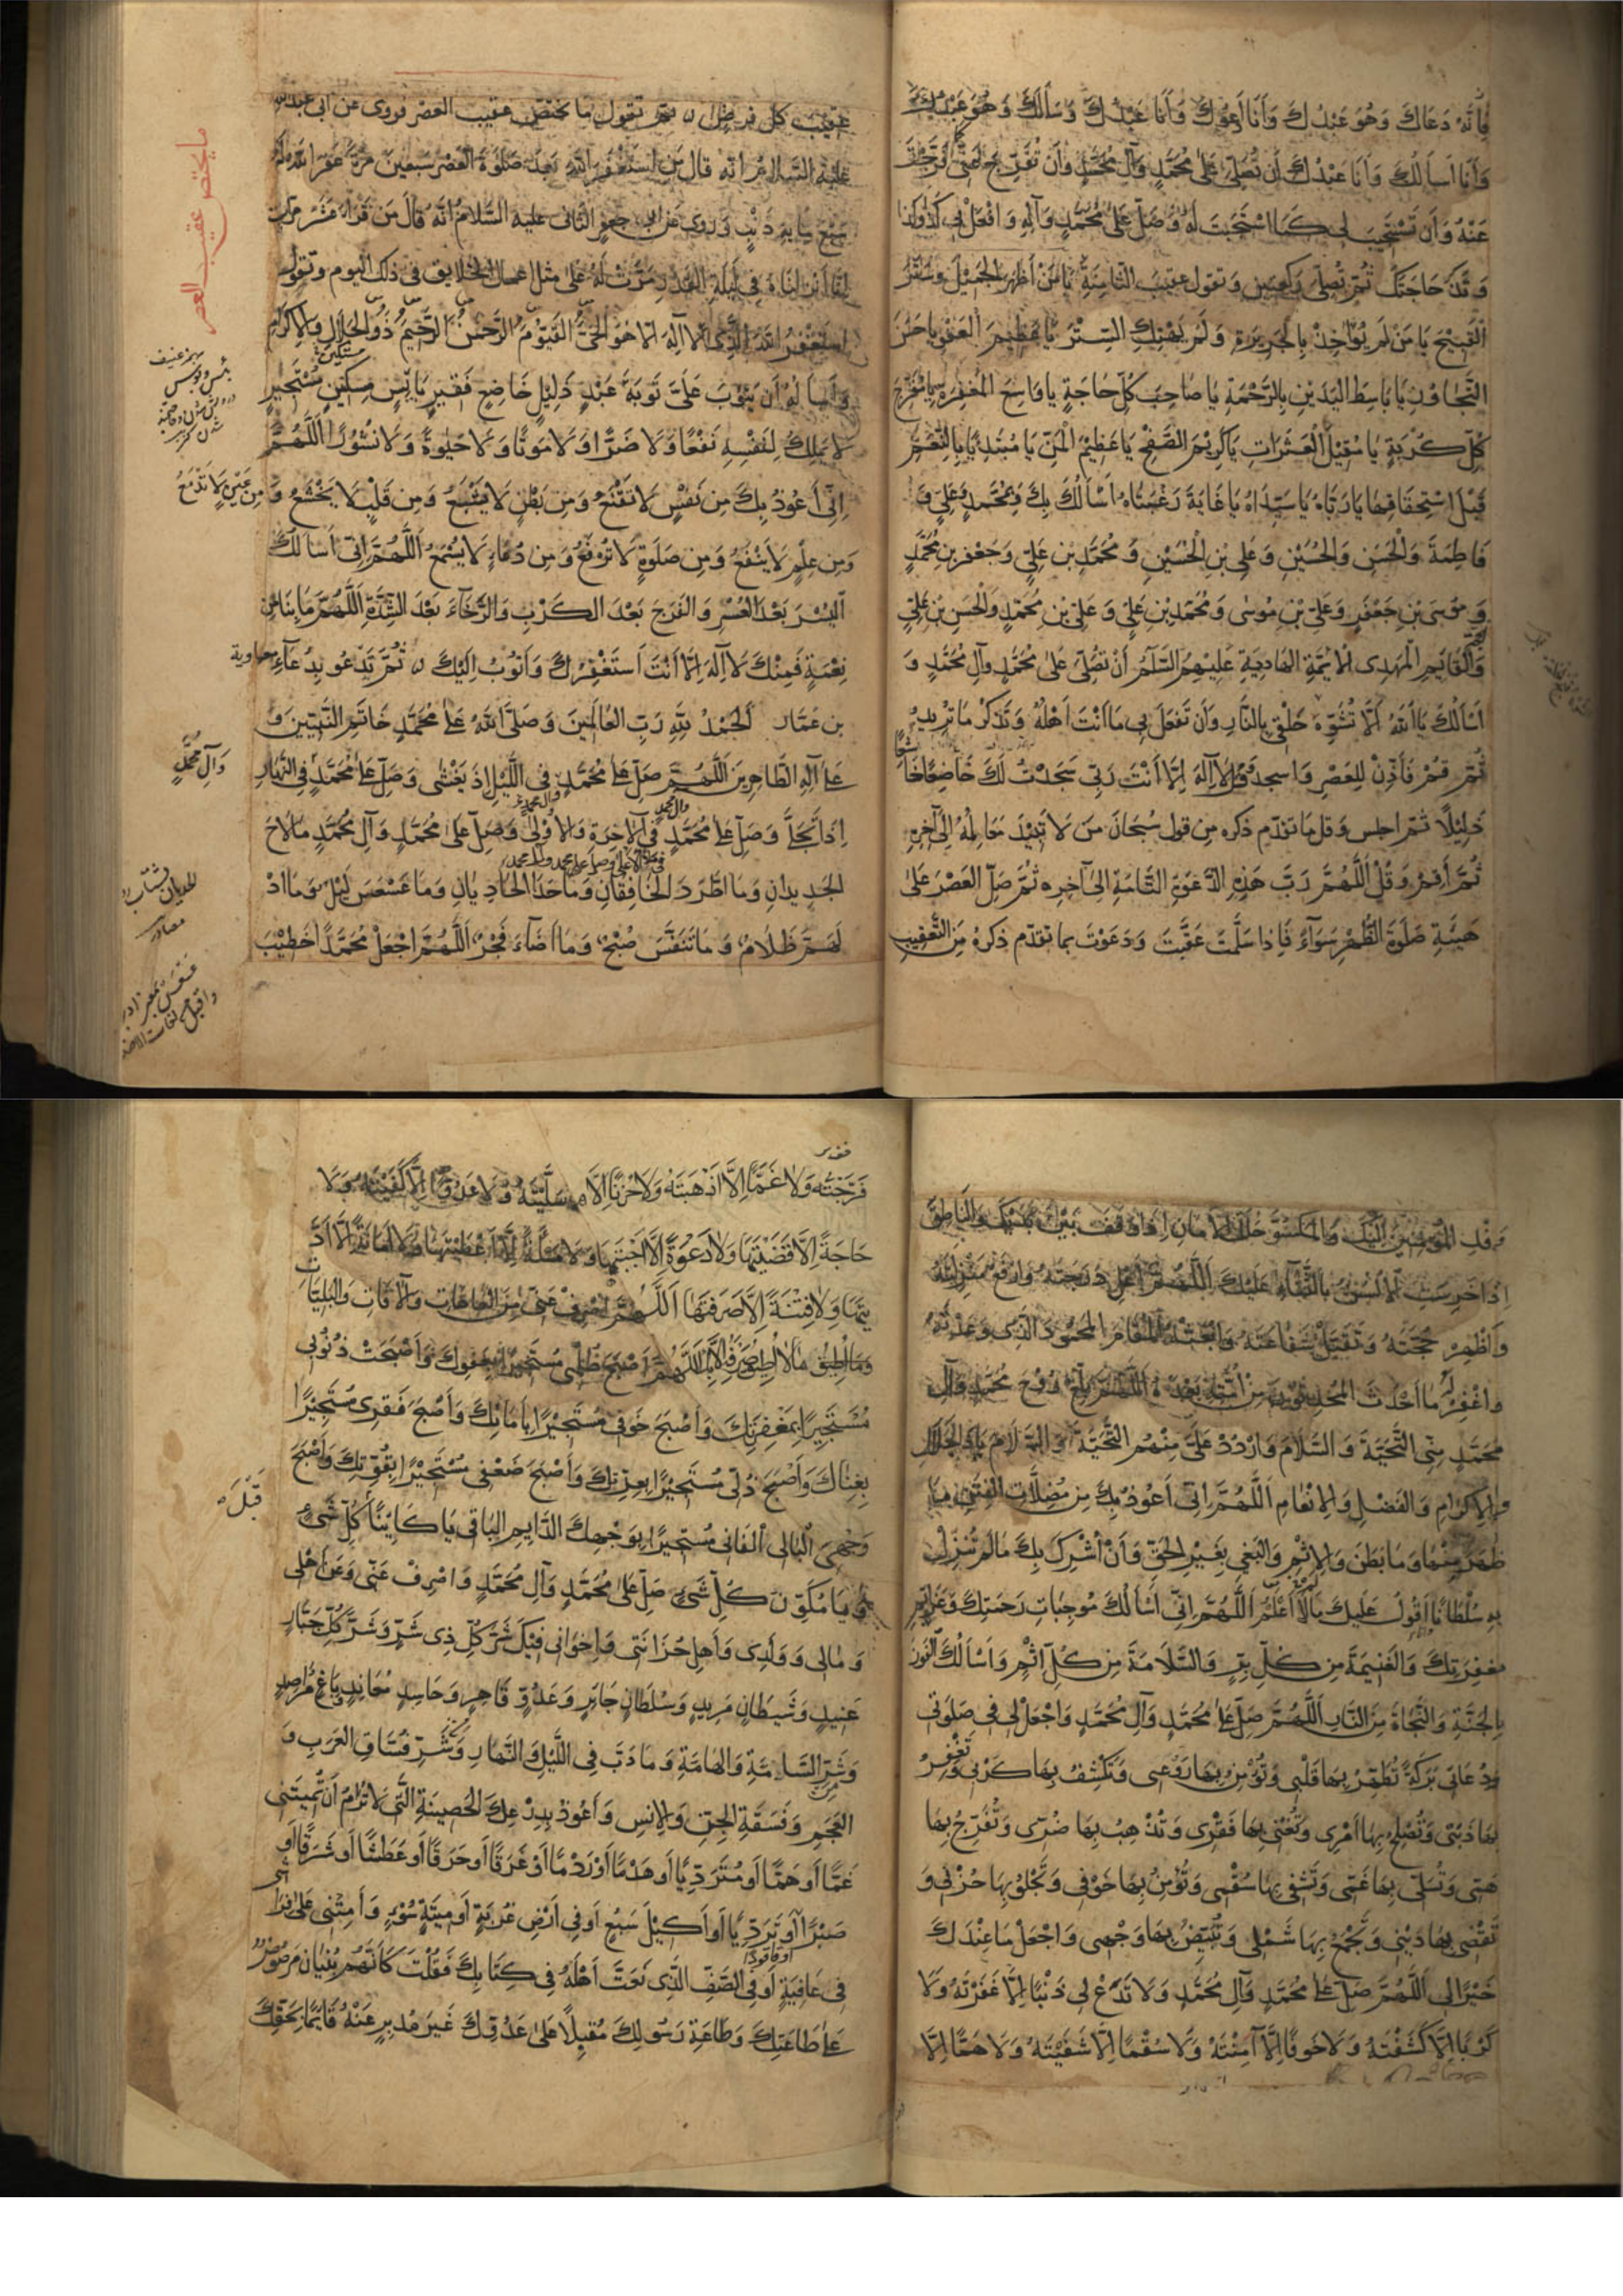 فَإِنَّهُ دَعَاكَ وَهُوَ عَبْدُكَ وَأَنَا أَدْعُوكَ وَأَنَا عَبْدُكَ وَسَأَلَكَ وَهُوَ عَبْدُكَ
وَأَنَا أَسْأَلُكَ وَأَنَا عَبْدُكَ أَنْ تُصَلِّيَ عَلَى مُحَمَّدٍ وَآلِ مُحَمَّدٍ وَأَنْ تُفَرِّجَ عَنِّي كَمَا فَرَّجْتَ
عَنْهُ وَأَنْ تَسْتَجِيبَ لِي كَمَا اسْتَجَبْتَ لَهُ وَصَلِّ عَلَى مُحَمَّدٍ وَآلِهِ وَافْعَلْ بِي كَذَا وَكَذَا
وَتَذْكُرُ حَاجَتَكَ ثُمَّ تُصَلِّي رَكْعَتَيْنِ وَتَقُولُ عَقِيبَ الثَّامِنَةِ يَا مَنْ أَظْهَرَ الْجَمِيلَ وَسَتَرَ
الْقَبِيحَ يَا مَنْ لَمْ يُؤَاخِذْ بِالْجَرِيرَةِ وَلَمْ يَهْتِكِ السِّتْرَ يَا عَظِيمَ الْعَفْوِ يَا حَسَنَ
التَّجَاوُزِ يَا بَاسِطَ الْيَدَيْنِ بِالرَّحْمَةِ يَا صَاحِبَ كُلِّ حَاجَةٍ يَا وَاسِعَ الْمَغْفِرَةِ يَا مُفَرِّجَ
كُلِّ كُرْبَةٍ يَا مُقِيلَ الْعَثَرَاتِ يَا كَرِيمَ الصَّفْحِ يَا عَظِيمَ الْمَنِّ يَا مُبْتَدِئًا بِالنِّعَمِ
قَبْلَ اسْتِحْقَاقِهَا يَا رَبَّاهُ يَا سَيِّدَاهُ يَا غَايَةَ رَغْبَتَاهُ أَسْأَلُكَ بِكَ وَبِمُحَمَّدٍ وَعَلِيٍّ وَ
فَاطِمَةَ وَالْحَسَنِ وَالْحُسَيْنِ وَعَلِيِّ بْنِ الْحُسَيْنِ وَمُحَمَّدِ بْنِ عَلِيٍّ وَجَعْفَرِ بْنِ مُحَمَّدٍ
وَمُوسَى بْنِ جَعْفَرٍ وَعَلِيِّ بْنِ مُوسَى وَمُحَمَّدِ بْنِ عَلِيٍّ وَعَلِيِّ بْنِ مُحَمَّدٍ وَالْحَسَنِ بْنِ عَلِيٍّ
وَالْقَائِمِ الْمَهْدِيِّ الْأَئِمَّةِ الْهَادِيَةِ عَلَيْهِمُ السَّلَامُ أَنْ تُصَلِّيَ عَلَى مُحَمَّدٍ وَآلِ مُحَمَّدٍ وَ
أَسْأَلُكَ يَا اللَّهُ أَلَّا تُشَوِّهَ خَلْقِي بِالنَّارِ وَأَنْ تَفْعَلَ بِي مَا أَنْتَ أَهْلُهُ وَتَذْكُرُ مَا تُرِيدُ
ثُمَّ قُمْ فَأَذِّنْ لِلْعَصْرِ وَاسْجُدْ وَقُلْ لَا إِلَهَ إِلَّا أَنْتَ رَبِّي سَجَدْتُ لَكَ خَاضِعًا خَاشِعًا
ذَلِيلًا ثُمَّ اجْلِسْ وَقُلْ مَا تَقَدَّمَ ذِكْرُهُ مِنْ قَوْلِ سُبْحَانَ مَنْ لَا تَبِيدُ مَعَالِمُهُ إِلَى آخِرِهِ
ثُمَّ أَقِمْ وَقُلْ اللَّهُمَّ رَبَّ هَذِهِ الدَّعْوَةِ التَّامَّةِ إِلَى آخِرِهِ ثُمَّ صَلِّ الْعَصْرَ عَلَى
هَيْئَةِ صَلَوةِ الظُّهْرِ سَوَاءً فَإِذَا سَلَّمْتَ عَقَّبْتَ وَدَعَوْتَ بِمَا تَقَدَّمَ ذِكْرُهُ مِنَ التَّعْقِيبِ
عَقِيبَ كُلِّ فَرِيضَةٍ ثُمَّ تَقُولُ مَا يَخْتَصُّ عَقِيبَ الْعَصْرِ فَرُوِيَ عَنْ أَبِي عَبْدِ اللَّهِ
عَلَيْهِ السَّلَامُ أَنَّهُ قَالَ مَنِ اسْتَغْفَرَ اللَّهَ بَعْدَ صَلَوةِ الْعَصْرِ سَبْعِينَ مَرَّةً غَفَرَ اللَّهُ لَهُ
سَبْعَ مِائَةِ ذَنْبٍ وَرُوِيَ عَنْ أَبِي جَعْفَرٍ الثَّانِي عَلَيْهِ السَّلَامُ أَنَّهُ قَالَ مَنْ قَرَأَ عَشْرَ مَرَّاتٍ
إِنَّا أَنْزَلْنَاهُ فِي لَيْلَةِ الْقَدْرِ مَرَّتْ لَهُ عَلَى مِثْلِ أَعْمَالِ الْخَلَائِقِ فِي ذَلِكَ الْيَوْمِ وَتَقُولُ
أَسْتَغْفِرُ اللَّهَ الَّذِي لَا إِلَهَ إِلَّا هُوَ الْحَيُّ الْقَيُّومُ الرَّحْمَنُ الرَّحِيمُ ذُو الْجَلَالِ وَالْإِكْرَامِ
وَأَسْأَلُهُ أَنْ يَتُوبَ عَلَيَّ تَوْبَةَ عَبْدٍ ذَلِيلٍ خَاضِعٍ فَقِيرٍ بَائِسٍ مِسْكِينٍ مُسْتَجِيرٍ
لَا يَمْلِكُ لِنَفْسِهِ نَفْعًا وَلَا ضَرًّا وَلَا مَوْتًا وَلَا حَيَوةً وَلَا نُشُورًا اللَّهُمَّ
إِنِّي أَعُوذُ بِكَ مِنْ نَفْسٍ لَا تَقْنَعُ وَمِنْ بَطْنٍ لَا يَشْبَعُ وَمِنْ قَلْبٍ لَا يَخْشَعُ وَمِنْ عَيْنٍ لَا تَدْمَعُ
وَمِنْ عِلْمٍ لَا يَنْفَعُ وَمِنْ صَلَوةٍ لَا تُرْفَعُ وَمِنْ دُعَاءٍ لَا يُسْمَعُ اللَّهُمَّ إِنِّي أَسْأَلُكَ
الْيُسْرَ بَعْدَ الْعُسْرِ وَالْفَرَجَ بَعْدَ الْكَرْبِ وَالرَّخَاءَ بَعْدَ الشِّدَّةِ اللَّهُمَّ مَا بِنَا مِنْ
نِعْمَةٍ فَمِنْكَ لَا إِلَهَ إِلَّا أَنْتَ أَسْتَغْفِرُكَ وَأَتُوبُ إِلَيْكَ ثُمَّ تَدْعُو بِدُعَاءِ معاوية
بن عَمَّار الْحَمْدُ لِلَّهِ رَبِّ الْعَالَمِينَ وَصَلَّى اللَّهُ عَلَى مُحَمَّدٍ خَاتَمِ النَّبِيِّينَ وَ
عَلَى آلِهِ الطَّاهِرِينَ اللَّهُمَّ صَلِّ عَلَى مُحَمَّدٍ فِي اللَّيْلِ إِذَا يَغْشَى وَصَلِّ عَلَى مُحَمَّدٍ وَآلِ مُحَمَّدٍ فِي النَّهَارِ
إِذَا تَجَلَّى وَصَلِّ عَلَى مُحَمَّدٍ فِي الْآخِرَةِ وَالْأُولَى وَصَلِّ عَلَى مُحَمَّدٍ وَآلِ مُحَمَّدٍ مَا لَاحَ
الْجَدِيدَانِ وَمَا اطَّرَدَ الْخَافِقَانِ وَمَا حَدَا الْحَادِيَانِ وَمَا عَسْعَسَ لَيْلٌ وَمَا ادْ
لَهَمَّ ظَلَامٌ وَمَا تَنَفَّسَ صُبْحٌ وَمَا أَضَاءَ فَجْرٌ اللَّهُمَّ اجْعَلْ مُحَمَّدًا خَطِيبَ
ما يختص عقيب العصر
وَفْدِ الْمُؤْمِنِينَ إِلَيْكَ وَالْمَكْسُوَّ حُلَلَ الْأَمَانِ إِذَا وَقَفَ بَيْنَ يَدَيْكَ وَالنَّاطِقَ
إِذَا خَرِسَتِ الْأَلْسُنُ بِالثَّنَاءِ عَلَيْكَ اللَّهُمَّ أَعْلِ دَرَجَتَهُ وَارْفَعْ مَنْزِلَتَهُ
وَأَظْهِرْ حُجَّتَهُ وَتَقَبَّلْ شَفَاعَتَهُ وَابْعَثْهُ الْمَقَامَ الْمَحْمُودَ الَّذِي وَعَدْتَهُ
وَاغْفِرْ مَا أَحْدَثَ الْمُحْدِثُونَ مِنْ أُمَّتِهِ بَعْدَهُ اللَّهُمَّ بَلِّغْ رُوحَ مُحَمَّدٍ وَآلِ
مُحَمَّدٍ مِنِّي التَّحِيَّةَ وَالسَّلَامَ وَارْدُدْ عَلَيَّ مِنْهُمُ التَّحِيَّةَ وَالسَّلَامَ يَا ذَا الْجَلَالِ
وَالْإِكْرَامِ وَالْفَضْلِ وَالْإِنْعَامِ اللَّهُمَّ إِنِّي أَعُوذُ بِكَ مِنْ مُضِلَّاتِ الْفِتَنِ مَا
ظَهَرَ مِنْهَا وَمَا بَطَنَ وَالْإِثْمِ وَالْبَغْيِ بِغَيْرِ الْحَقِّ وَأَنْ أُشْرِكَ بِكَ مَا لَمْ تُنَزِّلْ
بِهِ سُلْطَانًا أَوْ أَقُولَ عَلَيْكَ مَا لَا أَعْلَمُ اللَّهُمَّ إِنِّي أَسْأَلُكَ مُوجِبَاتِ رَحْمَتِكَ وَعَزَائِمَ
مَغْفِرَتِكَ وَالْغَنِيمَةَ مِنْ كُلِّ بِرٍّ وَالسَّلَامَةَ مِنْ كُلِّ إِثْمٍ وَأَسْأَلُكَ الْفَوْزَ
بِالْجَنَّةِ وَالنَّجَاةَ مِنَ النَّارِ اللَّهُمَّ صَلِّ عَلَى مُحَمَّدٍ وَآلِ مُحَمَّدٍ وَاجْعَلْ لِي فِي صَلَوتِي
وَدُعَائِي بَرَكَةً تُطَهِّرُ بِهَا قَلْبِي وَتُؤْمِنُ بِهَا رَوْعَتِي وَتَكْشِفُ بِهَا كَرْبِي وَتَغْفِرُ
بِهَا ذَنْبِي وَتُصْلِحُ بِهَا أَمْرِي وَتُغْنِي بِهَا فَقْرِي وَتُذْهِبُ بِهَا ضُرِّي وَتُفَرِّجُ بِهَا
هَمِّي وَتُسَلِّي بِهَا غَمِّي وَتَشْفِي بِهَا سُقْمِي وَتُؤْمِنُ بِهَا خَوْفِي وَتَجْلُو بِهَا حُزْنِي وَ
تَقْضِي بِهَا دَيْنِي وَتَجْمَعُ بِهَا شَمْلِي وَتُبَيِّضُ بِهَا وَجْهِي وَاجْعَلْ مَا عِنْدَكَ
خَيْرًا لِي اللَّهُمَّ صَلِّ عَلَى مُحَمَّدٍ وَآلِ مُحَمَّدٍ وَلَا تَدَعْ لِي ذَنْبًا إِلَّا غَفَرْتَهُ وَلَا
كَرْبًا إِلَّا كَشَفْتَهُ وَلَا خَوْفًا إِلَّا آمَنْتَهُ وَلَا سُقْمًا إِلَّا شَفَيْتَهُ وَلَا هَمًّا إِلَّا
فَرَّجْتَهُ وَلَا غَمًّا إِلَّا أَذْهَبْتَهُ وَلَا حُزْنًا إِلَّا سَلَّيْتَهُ وَلَا عَدُوًّا إِلَّا كَفَيْتَهُ وَلَا
حَاجَةً إِلَّا قَضَيْتَهَا وَلَا دَعْوَةً إِلَّا أَجَبْتَهَا وَلَا مَسْأَلَةً إِلَّا أَعْطَيْتَهَا وَلَا أَمَانَةً إِلَّا أَدَّ
يْتَهَا وَلَا فِتْنَةً إِلَّا صَرَفْتَهَا اللَّهُمَّ اصْرِفْ عَنِّي مِنَ الْعَاهَاتِ وَالْآفَاتِ وَالْبَلِيَّاتِ
وَمَا أُطِيقُ مَا لَا أُطِيقُ صَرْفَهُ إِلَّا بِكَ اللَّهُمَّ أَصْبَحَ ظُلْمِي مُسْتَجِيرًا بِعَفْوِكَ وَأَصْبَحَتْ ذُنُوبِي
مُسْتَجِيرَةً بِمَغْفِرَتِكَ وَأَصْبَحَ خَوْفِي مُسْتَجِيرًا بِأَمَانِكَ وَأَصْبَحَ فَقْرِي مُسْتَجِيرًا
بِغِنَاكَ وَأَصْبَحَ ذُلِّي مُسْتَجِيرًا بِعِزِّكَ وَأَصْبَحَ ضَعْفِي مُسْتَجِيرًا بِقُوَّتِكَ وَأَصْبَحَ
وَجْهِيَ الْبَالِي الْفَانِي مُسْتَجِيرًا بِوَجْهِكَ الدَّائِمِ الْبَاقِي يَا كَائِنًا قَبْلَ كُلِّ شَيْءٍ
وَيَا مُكَوِّنَ كُلِّ شَيْءٍ صَلِّ عَلَى مُحَمَّدٍ وَآلِ مُحَمَّدٍ وَاصْرِفْ عَنِّي وَعَنْ أَهْلِي
وَمَالِي وَوَلَدِي وَأَهْلِ حُزَانَتِي وَإِخْوَانِي فِيكَ شَرَّ كُلِّ ذِي شَرٍّ وَشَرَّ كُلِّ جَبَّارٍ
عَنِيدٍ وَشَيْطَانٍ مَرِيدٍ وَسُلْطَانٍ جَائِرٍ وَعَدُوٍّ قَاهِرٍ وَحَاسِدٍ مُعَانِدٍ وَبَاغٍ مُرَاصِدٍ
وَشَرِّ السَّامَّةِ وَالْهَامَّةِ وَمَا دَبَّ فِي اللَّيْلِ وَالنَّهَارِ وَشَرِّ فُسَّاقِ الْعَرَبِ وَ
الْعَجَمِ وَفَسَقَةِ الْجِنِّ وَالْإِنْسِ وَأَعُوذُ بِدِرْعِكَ الْحَصِينَةِ الَّتِي لَا تُرَامُ أَنْ تُمِيتَنِي
غَمًّا أَوْ هَمًّا أَوْ مُتَرَدِّيًا أَوْ هَدْمًا أَوْ رَدْمًا أَوْ غَرَقًا أَوْ حَرَقًا أَوْ عَطَشًا أَوْ شَرَقًا أَوْ
صَبْرًا أَوْ تَرَدِّيًا أَوْ أَكِيلَ سَبُعٍ أَوْ فِي أَرْضِ غُرْبَةٍ أَوْ مِيتَةِ سُوءٍ وَأَمِتْنِي عَلَى فِرَاشِي
فِي عَافِيَةٍ أَوْ فِي الصَّفِّ الَّذِي نَعَتَّ أَهْلَهُ فِي كِتَابِكَ فَقُلْتَ كَأَنَّهُمْ بُنْيَانٌ مَرْصُوصٌ
عَلَى طَاعَتِكَ وَطَاعَةِ رَسُولِكَ مُقْبِلًا عَلَى عَدُوِّكَ غَيْرَ مُدْبِرٍ عَنْهُ قَائِمًا بِحَقِّكَ